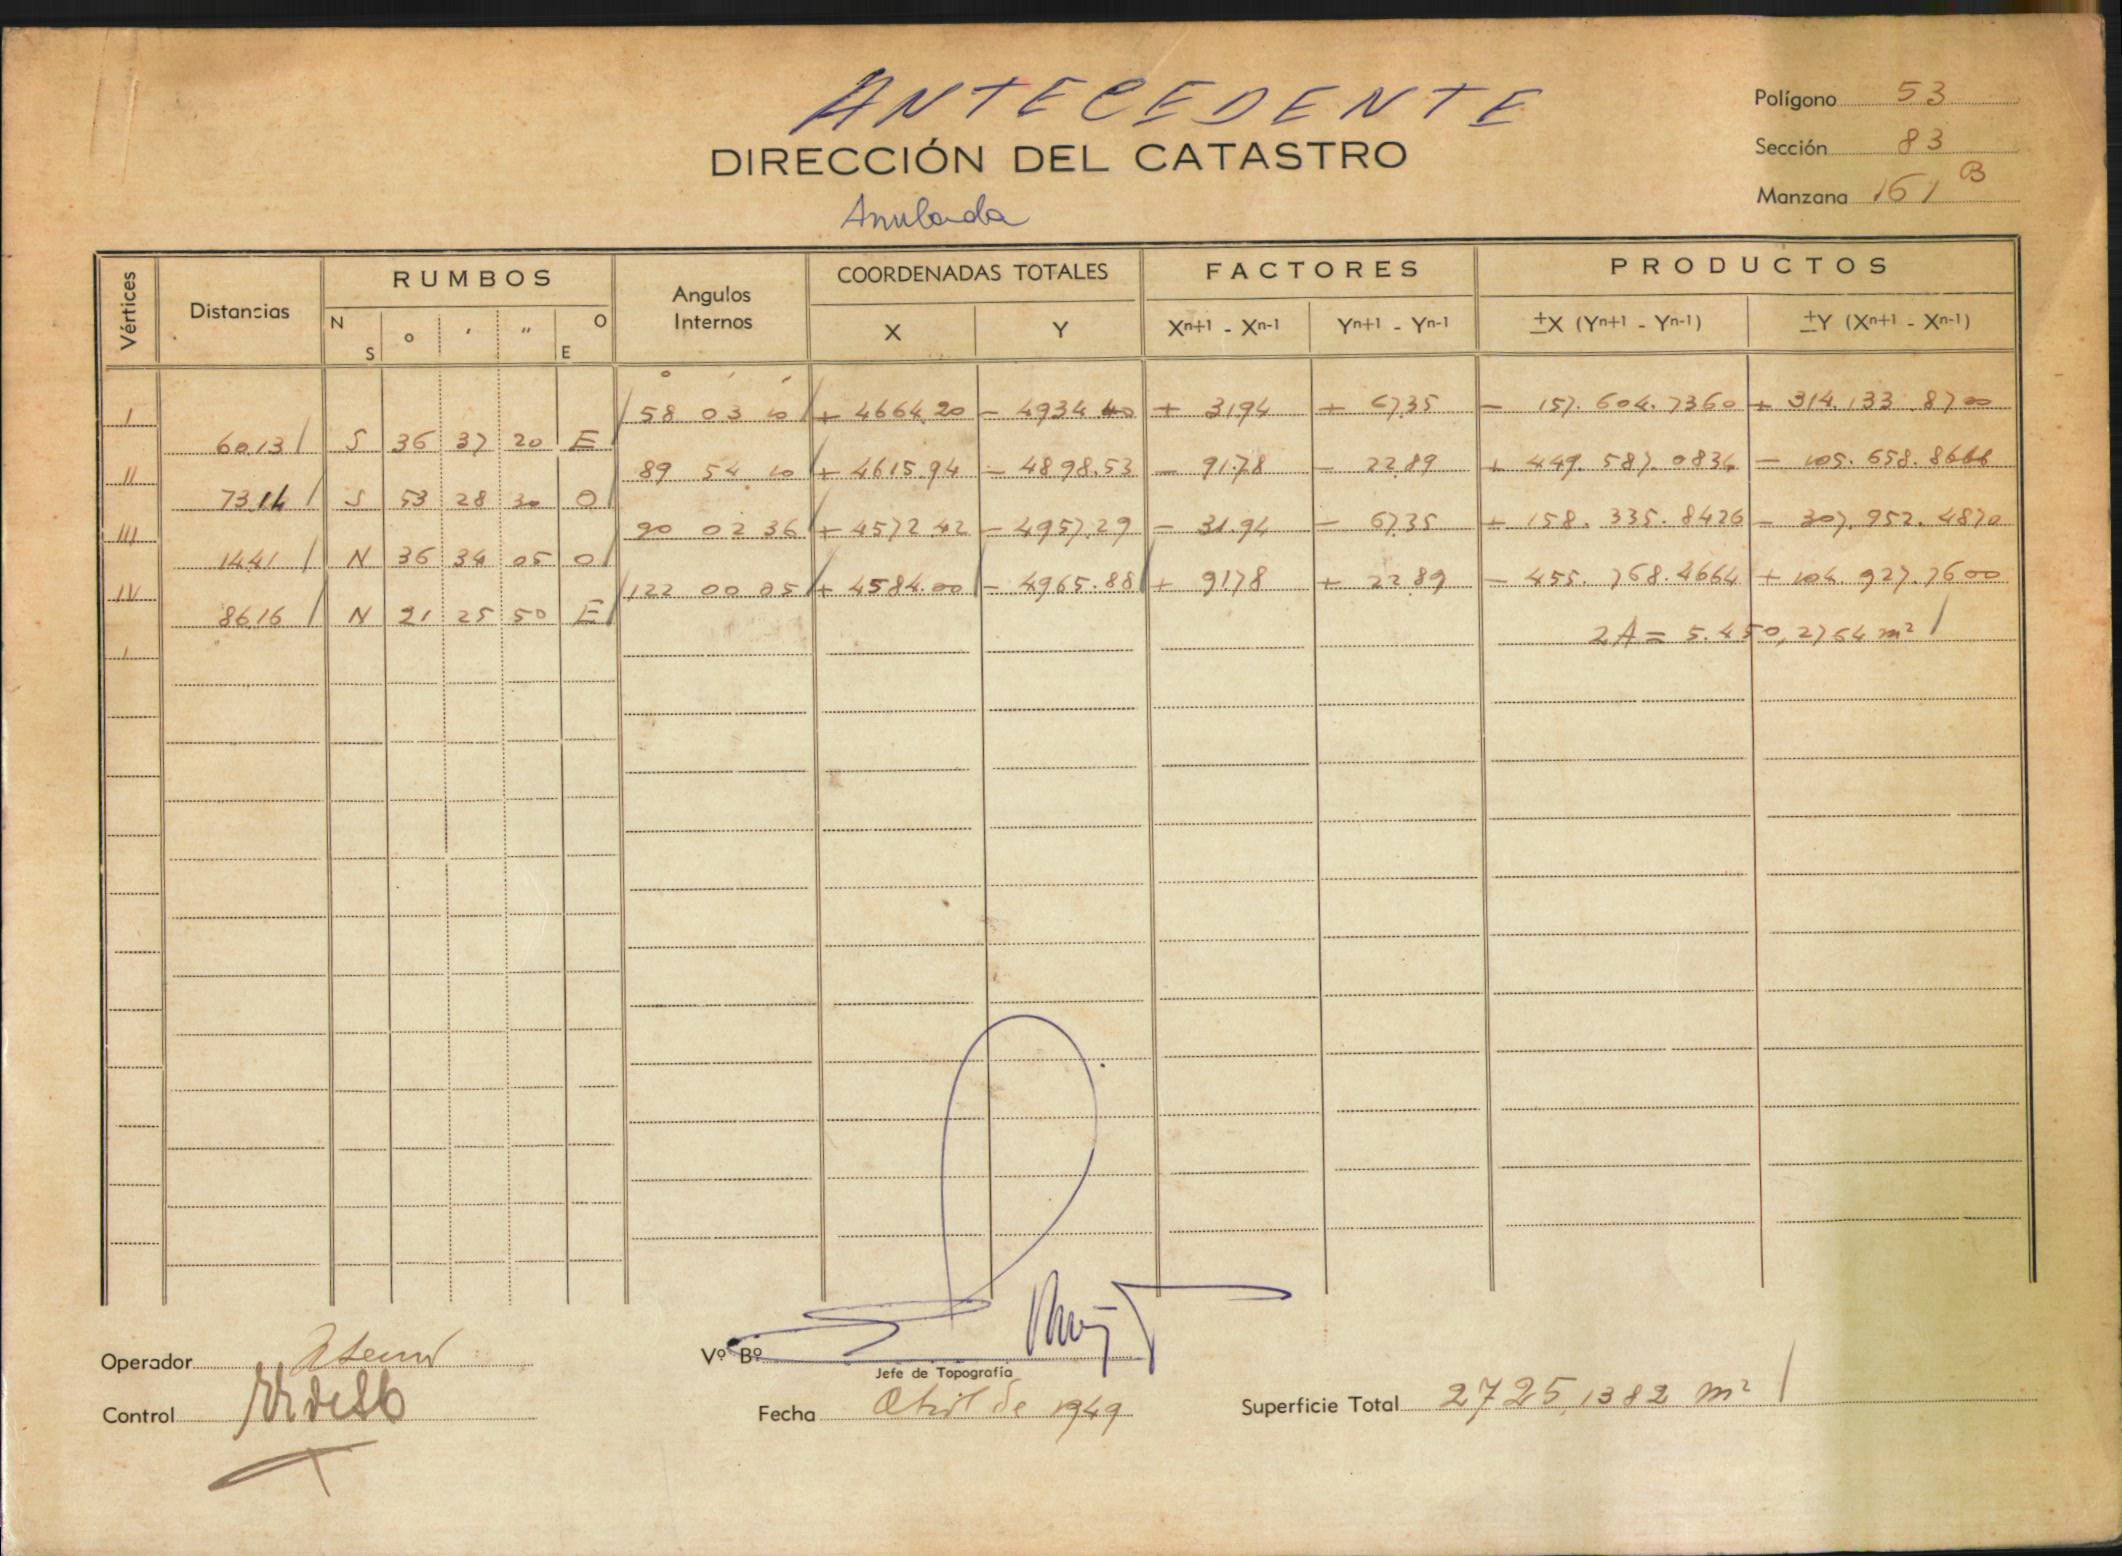 ANTECEDENTE
DIRECCIÓN DEL CATASTRO
Anulada
Polígono 53
Sección 83
Manzana 161 B
Vértices Distancias RUMBOS Angulos Internos COORDENADAS TOTALES FACTORES PRODUCTOS
N S o ' " O E X Y Xn+1 - Xn-1 Yn+1 - Yn-1 ±X (Yn+1 - Yn-1) ±Y (Xn+1 - Xn-1)
o ' "
I 58 03 10 + 4664.20 - 4934.40 + 31.94 + 67.35 - 157.604.7360 + 314.133.8700
60.13 S 36 37 20 E
II 89 54 10 + 4615.94 - 4898.53 - 91.78 - 22.89 + 449.587.0834 - 105.658.8666
73.14 S 53 28 30 O
III 90 02 36 + 4572.42 - 4957.29 - 31.94 - 67.35 + 158.335.8426 - 307.952.4870
14.41 N 36 34 05 O
IV 122 00 05 + 4584.00 - 4965.88 + 91.78 + 22.89 - 455.768.4664 + 104.927.7600
86.16 N 21 25 50 E
I 2A = 5.450,2764 m²
Operador
Control
Vº Bº
Jefe de Topografía
Fecha Abril de 1949
Superficie Total 2725,1382 m²